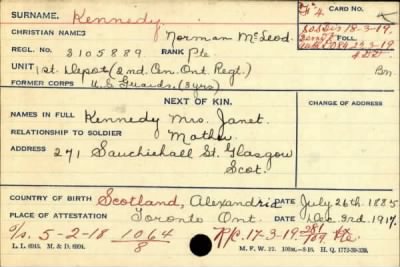 SURNAME. Kennedy. CARD NO.
CHRISTIAN NAMES Norman McLeod.
S.O.S. Dis 18-3-19.
FOLL.
REGL. NO. 3105889 RANK Pte
UNIT 1st Depot (2nd Cen. Ont. Regt.) Bn
FORMER CORPS U.S. Guards. (3yrs)
NEXT OF KIN. CHANGE OF ADDRESS
NAMES IN FULL Kennedy Mrs. Janet.
RELATIONSHIP TO SOLDIER Mother
ADDRESS 271 Sauchiehall St. Glasgow
Scot.
COUNTRY OF BIRTH Scotland, Alexandria DATE July 26th. 1885
PLACE OF ATTESTATION Toronto Ont. DATE Dec. 3rd. 1917.
O/S. 5-2-18 1064/8 R/C. 17-3-19
L. L. 6945. M. & D. 6994. M. F. W. 22. H. Q. 1772-39-339.